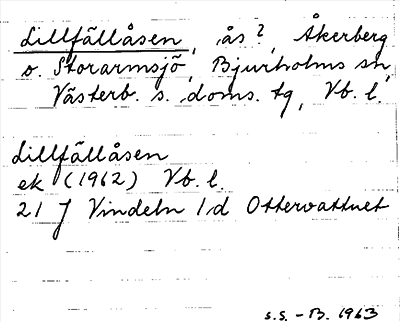 Lillfällåsen, ås?, Åkerberg
o. Storarmsjö, Bjurholms sn,
Västerb. s. doms. tg, Vb. l.
Lillfällåsen
ek (1962) Vb. l.
21 J Vindeln 1d Ottervattnet
S.S. - B. 1963